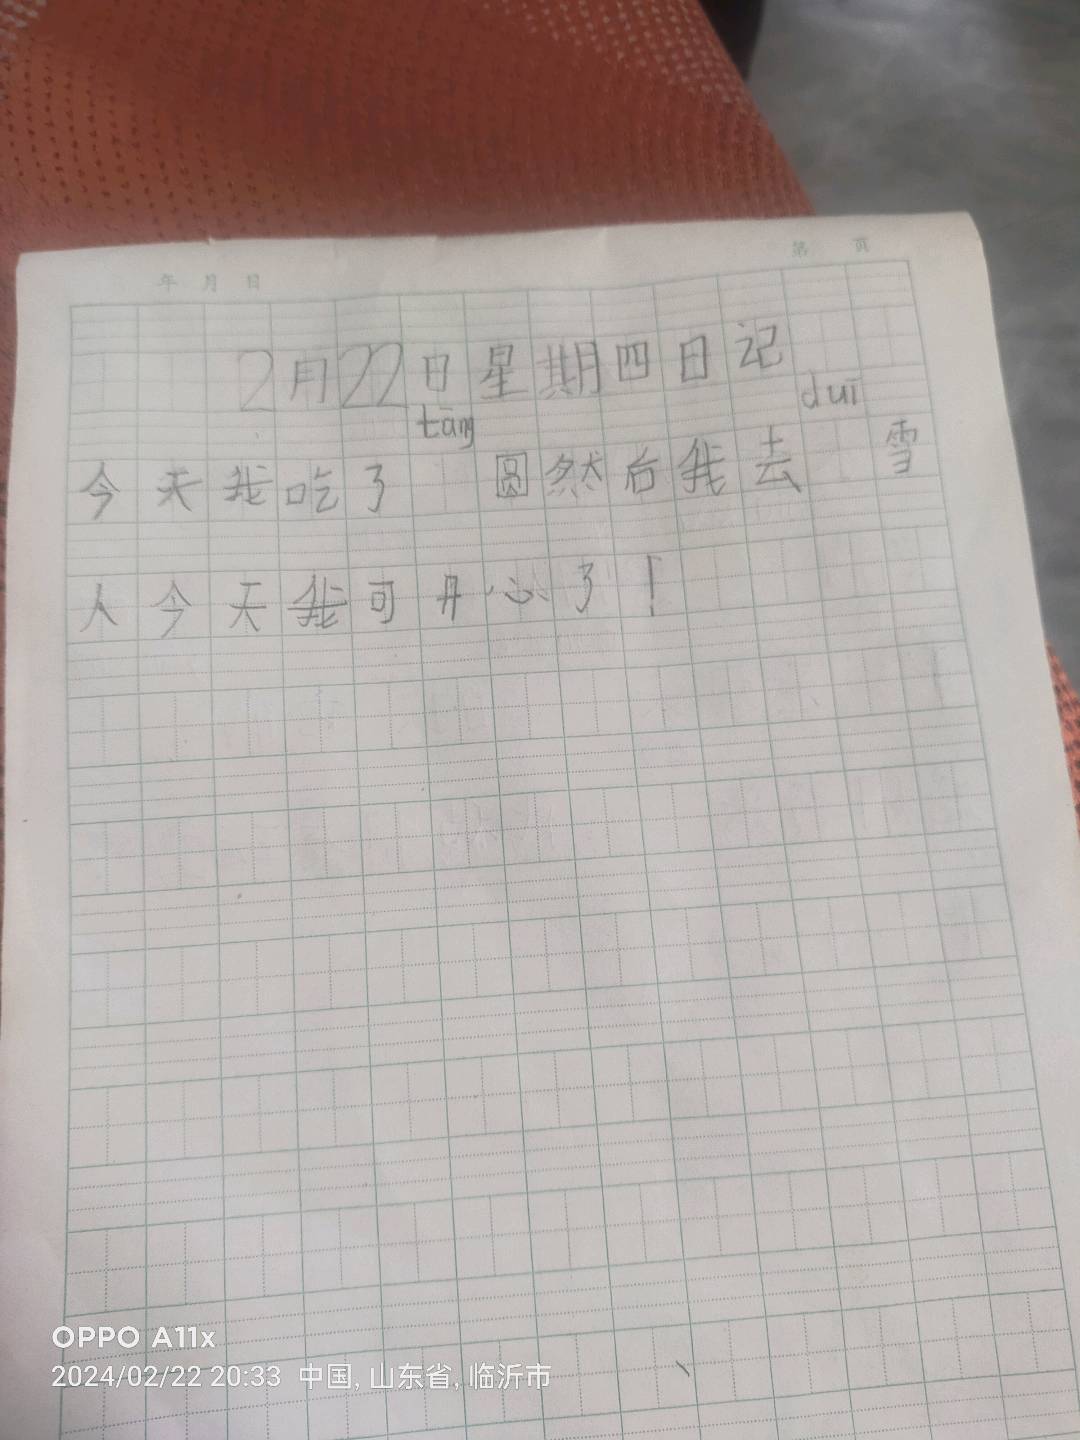 年 月 日 第 页
2月22日星期四日记
今天我吃了tāng圆然后我去duī雪
人今天我可开心了!
OPPO A11x
2024/02/22 20:33 中国, 山东省, 临沂市